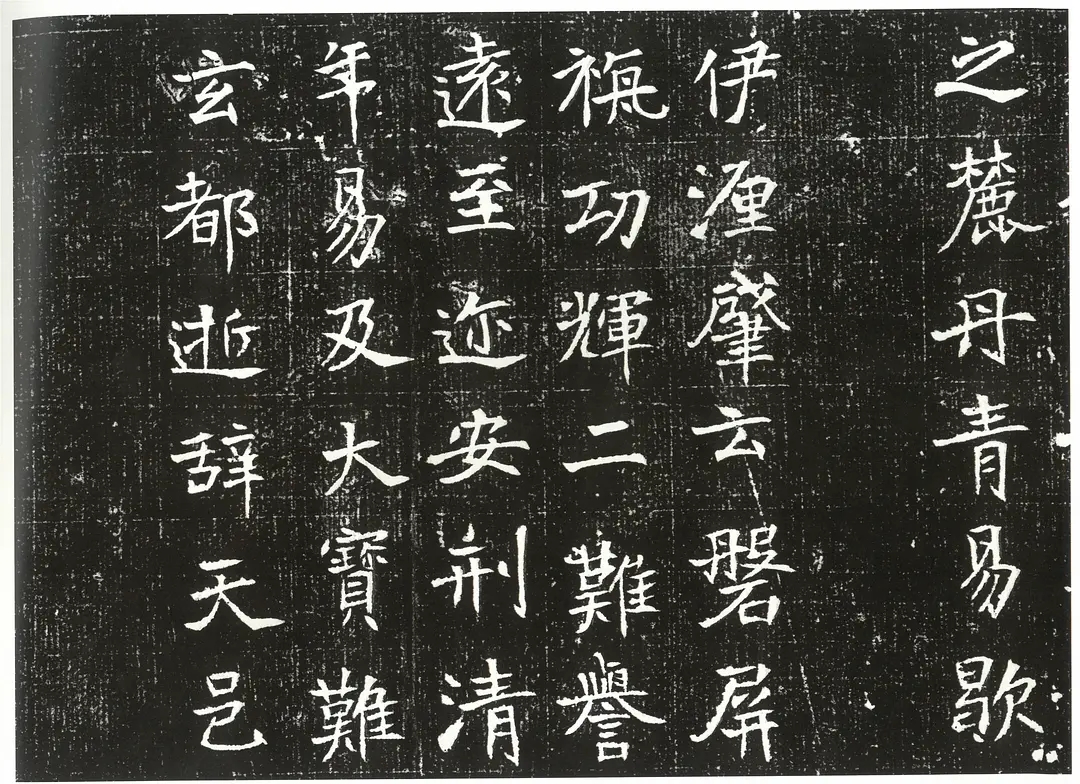 之麓丹青易歇
伊湮肇云磐屏
功輝二難譽
遠至迩安刑清
年易及大寶難
玄都逝辞天邑